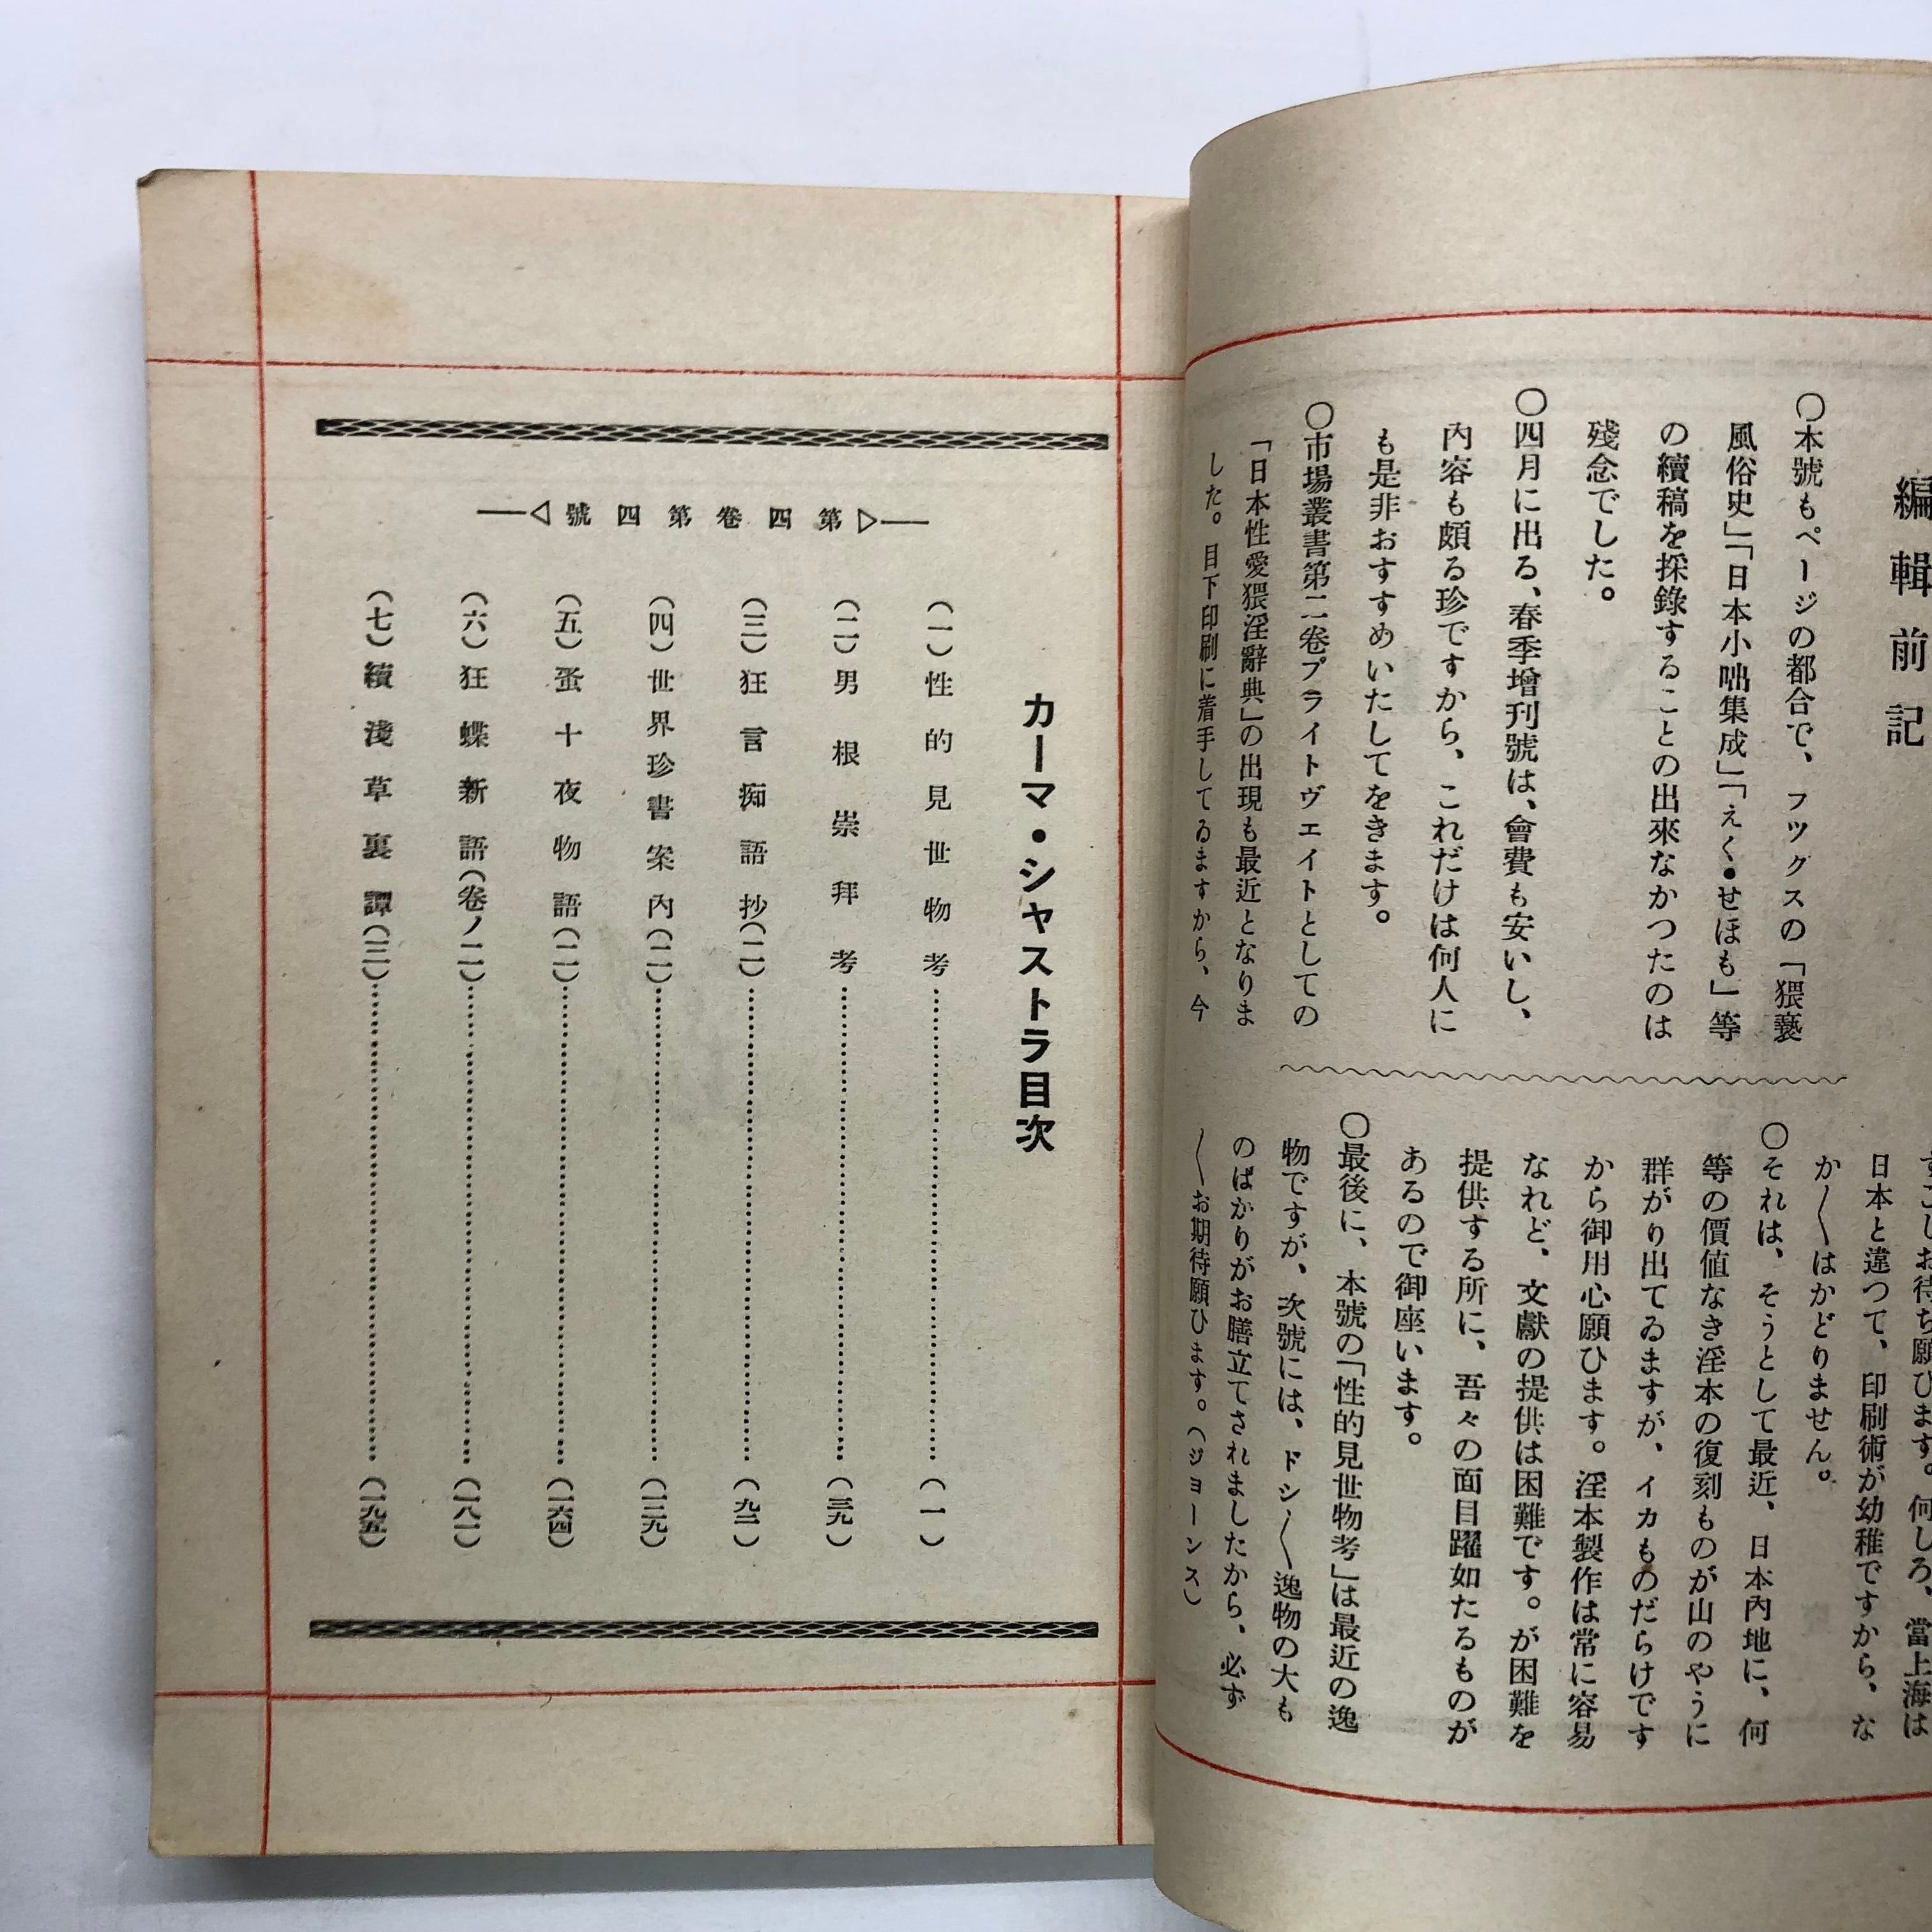 編輯前記
〇本號もページの都合で、フツクスの「猥褻
風俗史」「日本小咄集成」「えく・せほも」等
の續稿を採錄することの出來なかつたのは
殘念でした。
〇四月に出る、春季增刊號は、會費も安いし、
內容も頗る珍ですから、これだけは何人に
も是非おすすめいたしてをきます。
〇市場叢書第二卷プライトヴエイトとしての
「日本性愛猥淫辭典」の出現も最近となりま
した。目下印刷に着手してゐますから、今
すこしお待ち願ひます。何しろ、當上海は
日本と違つて、印刷術が幼稚ですから、な
か〱はかどりません。
〇それは、そうとして最近、日本內地に、何
等の價値なき淫本の復刻ものが山のやうに
群がり出てゐますが、イカものだらけです
から御用心願ひます。淫本製作は常に容易
なれど、文獻の提供は困難です。が困難を
提供する所に、吾々の面目躍如たるものが
あるので御座います。
〇最後に、本號の「性的見世物考」は最近の逸
物ですが、次號には、ドシ〱逸物の大も
のばかりがお膳立てされましたから、必ず
〱お期待願ひます。(ジョーンス)
第四卷第四號
カーマ・シャストラ目次
(一)性的見世物考……(一)
(二)男根崇拜考……(三九)
(三)狂言痴語抄(二)……(九二)
(四)世界珍書案內(二)……(一二九)
(五)蚤十夜物語(二)……(一六四)
(六)狂蝶新語(卷ノ二)……(一八一)
(七)續淺草裏譚(三)……(一九五)